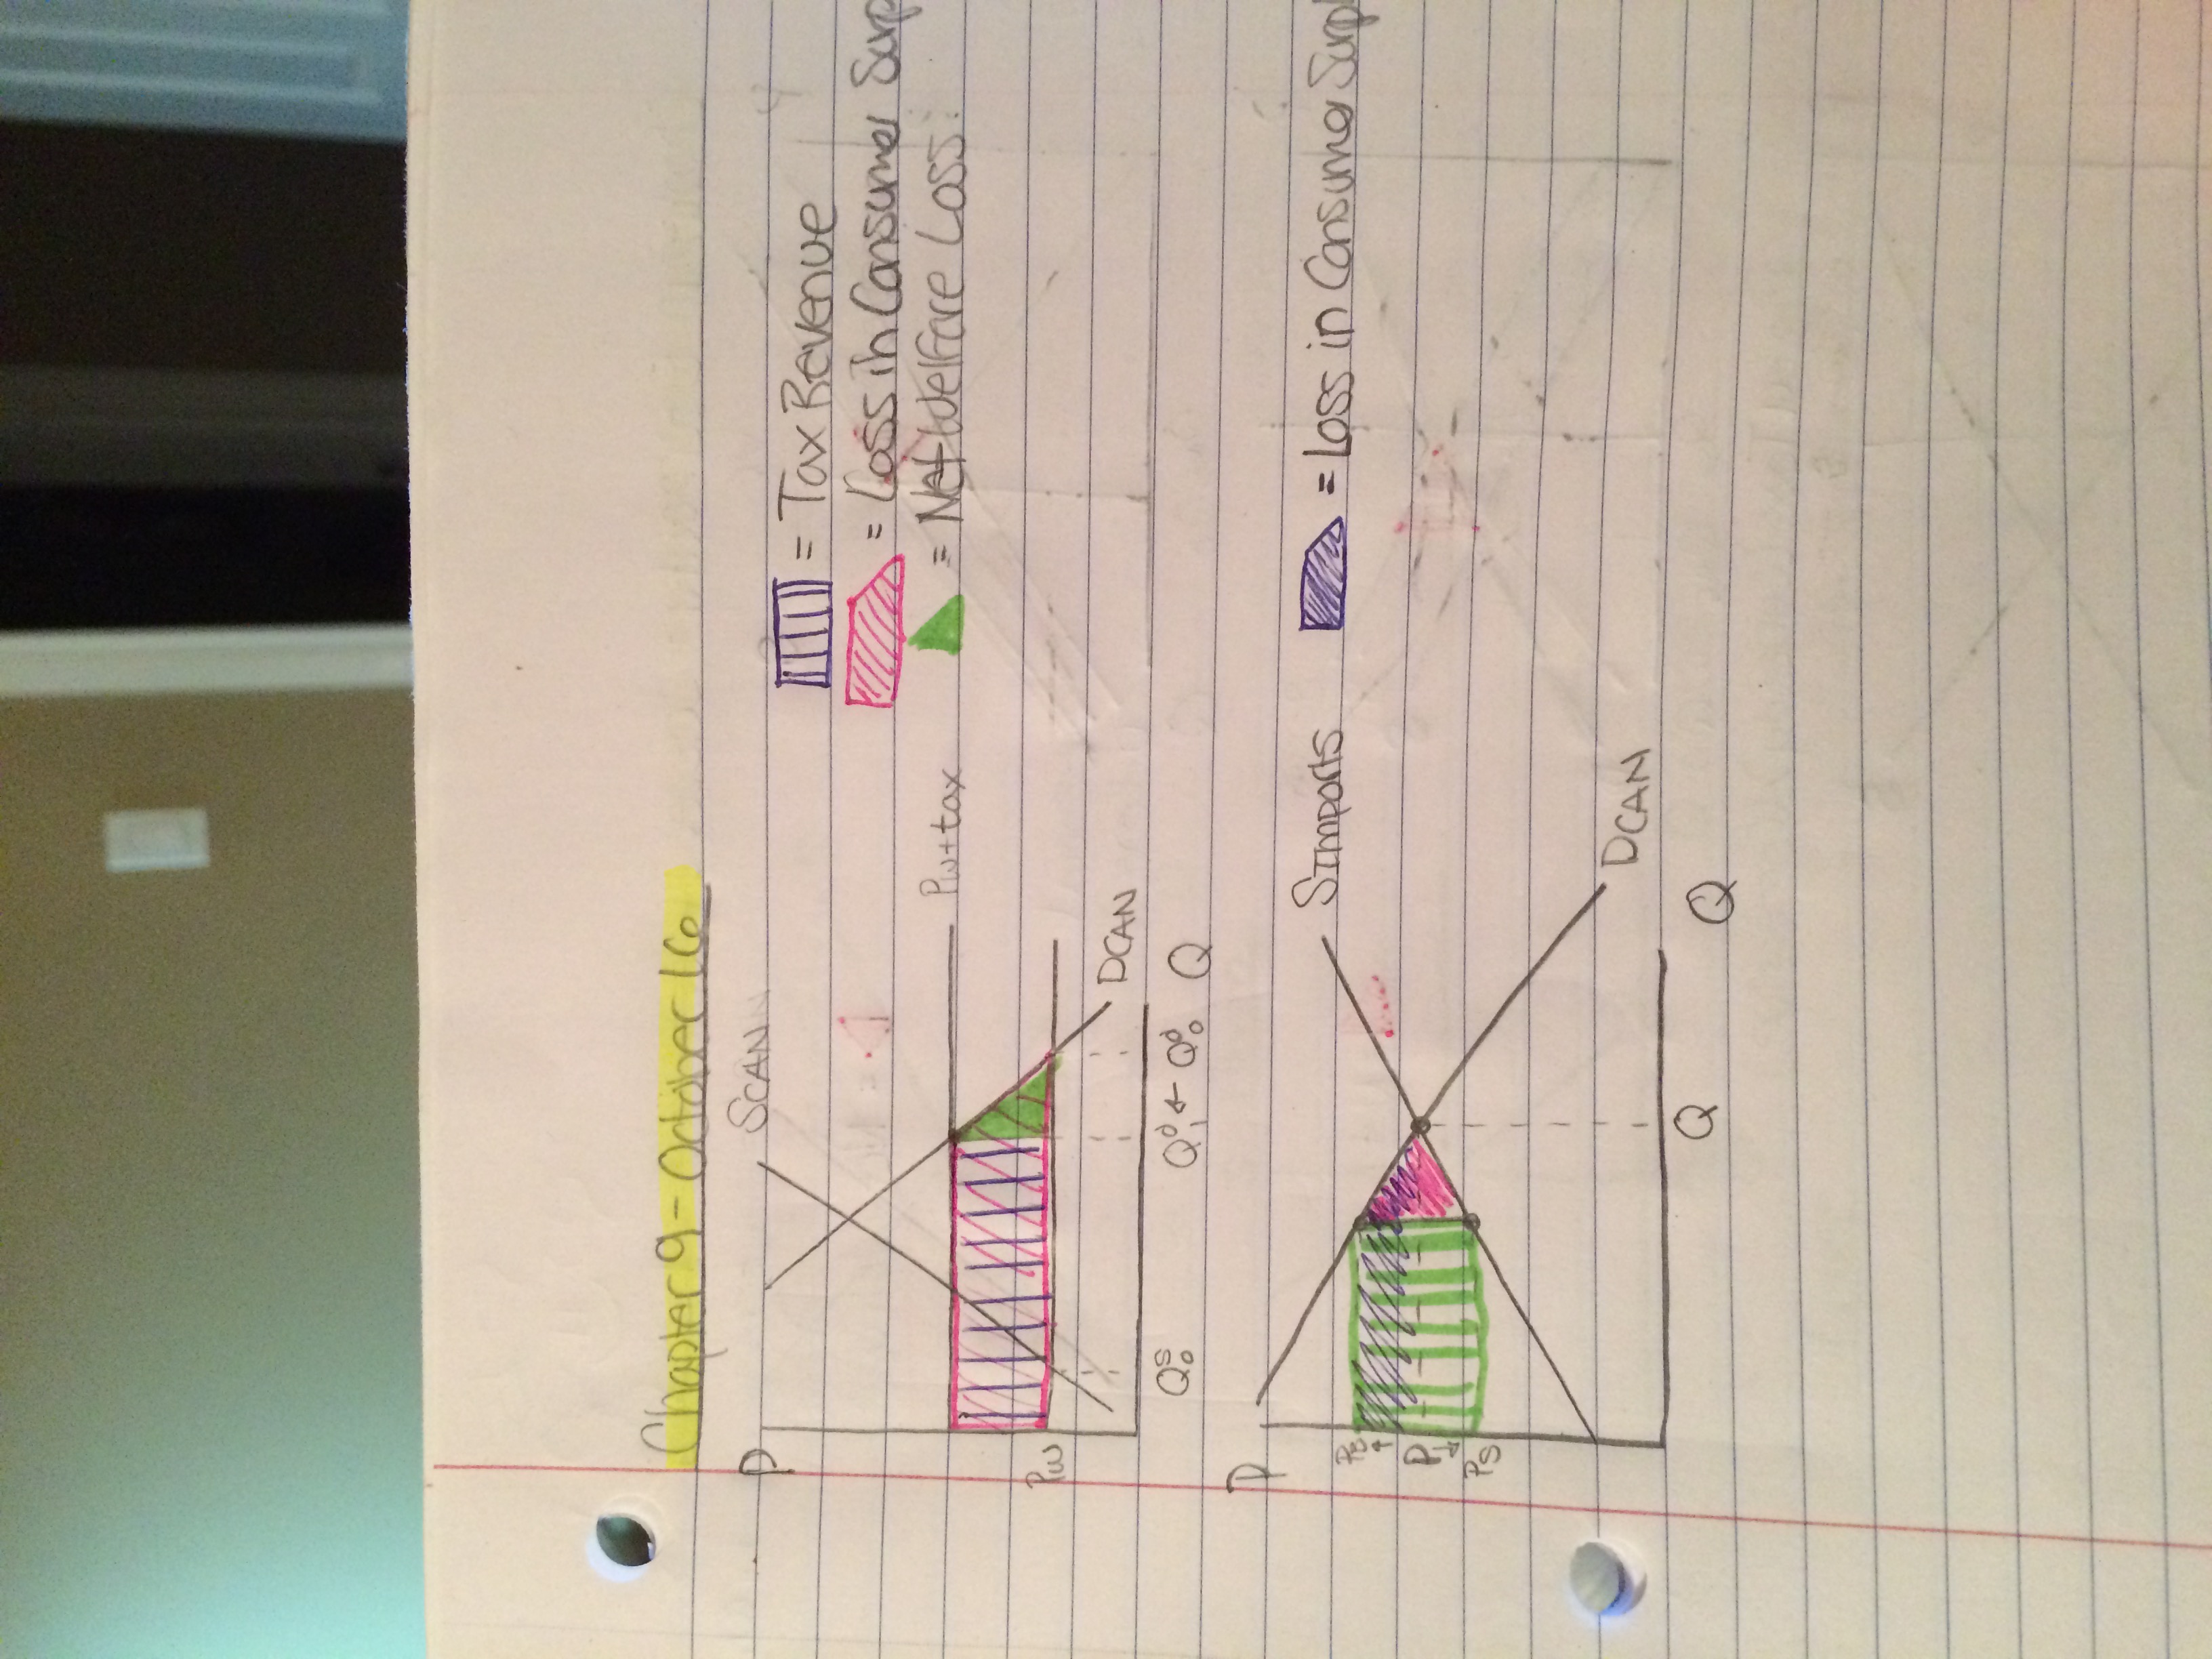 Chapter 9 - October 16
P
SCAN
Pw+tax
Pw
DCAN
Q
Q₀ˢ
Q₁ᵈ ← Q₀ᵈ
= Tax Revenue
= Loss in Consumer Surp
= Net Welfare Loss:
P
SImports
PB
P
PS
DCAN
Q
Q
= Loss in Consumer Surpl